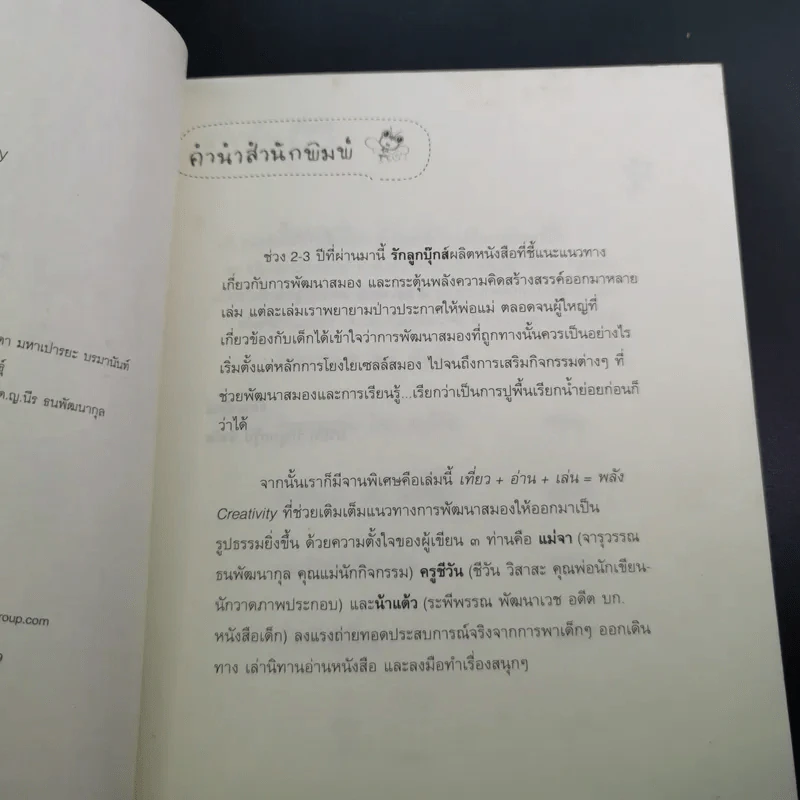 y
ดา มหาเปารยะ บรมานันท์
ด.ญ.นีร ธนพัฒนากุล
roup.com
9
คำนำสำนักพิมพ์
ช่วง 2-3 ปีที่ผ่านมานี้ รักลูกบุ๊กส์ผลิตหนังสือที่ชี้แนะแนวทาง
เกี่ยวกับการพัฒนาสมอง และกระตุ้นพลังความคิดสร้างสรรค์ออกมาหลาย
เล่ม แต่ละเล่มเราพยายามป่าวประกาศให้พ่อแม่ ตลอดจนผู้ใหญ่ที่
เกี่ยวข้องกับเด็กได้เข้าใจว่าการพัฒนาสมองที่ถูกทางนั้นควรเป็นอย่างไร
เริ่มตั้งแต่หลักการโยงใยเซลล์สมอง ไปจนถึงการเสริมกิจกรรมต่างๆ ที่
ช่วยพัฒนาสมองและการเรียนรู้...เรียกว่าเป็นการปูพื้นเรียกน้ำย่อยก่อนก็
ว่าได้
จากนั้นเราก็มีจานพิเศษคือเล่มนี้ เที่ยว + อ่าน + เล่น = พลัง
Creativity ที่ช่วยเติมเต็มแนวทางการพัฒนาสมองให้ออกมาเป็น
รูปธรรมยิ่งขึ้น ด้วยความตั้งใจของผู้เขียน ๓ ท่านคือ แม่จา (จารุวรรณ
ธนพัฒนากุล คุณแม่นักกิจกรรม) ครูชีวัน (ชีวัน วิสาสะ คุณพ่อนักเขียน-
นักวาดภาพประกอบ) และน้าแต้ว (ระพีพรรณ พัฒนาเวช อดีต บก.
หนังสือเด็ก) ลงแรงถ่ายทอดประสบการณ์จริงจากการพาเด็กๆ ออกเดิน
ทาง เล่านิทานอ่านหนังสือ และลงมือทำเรื่องสนุกๆ